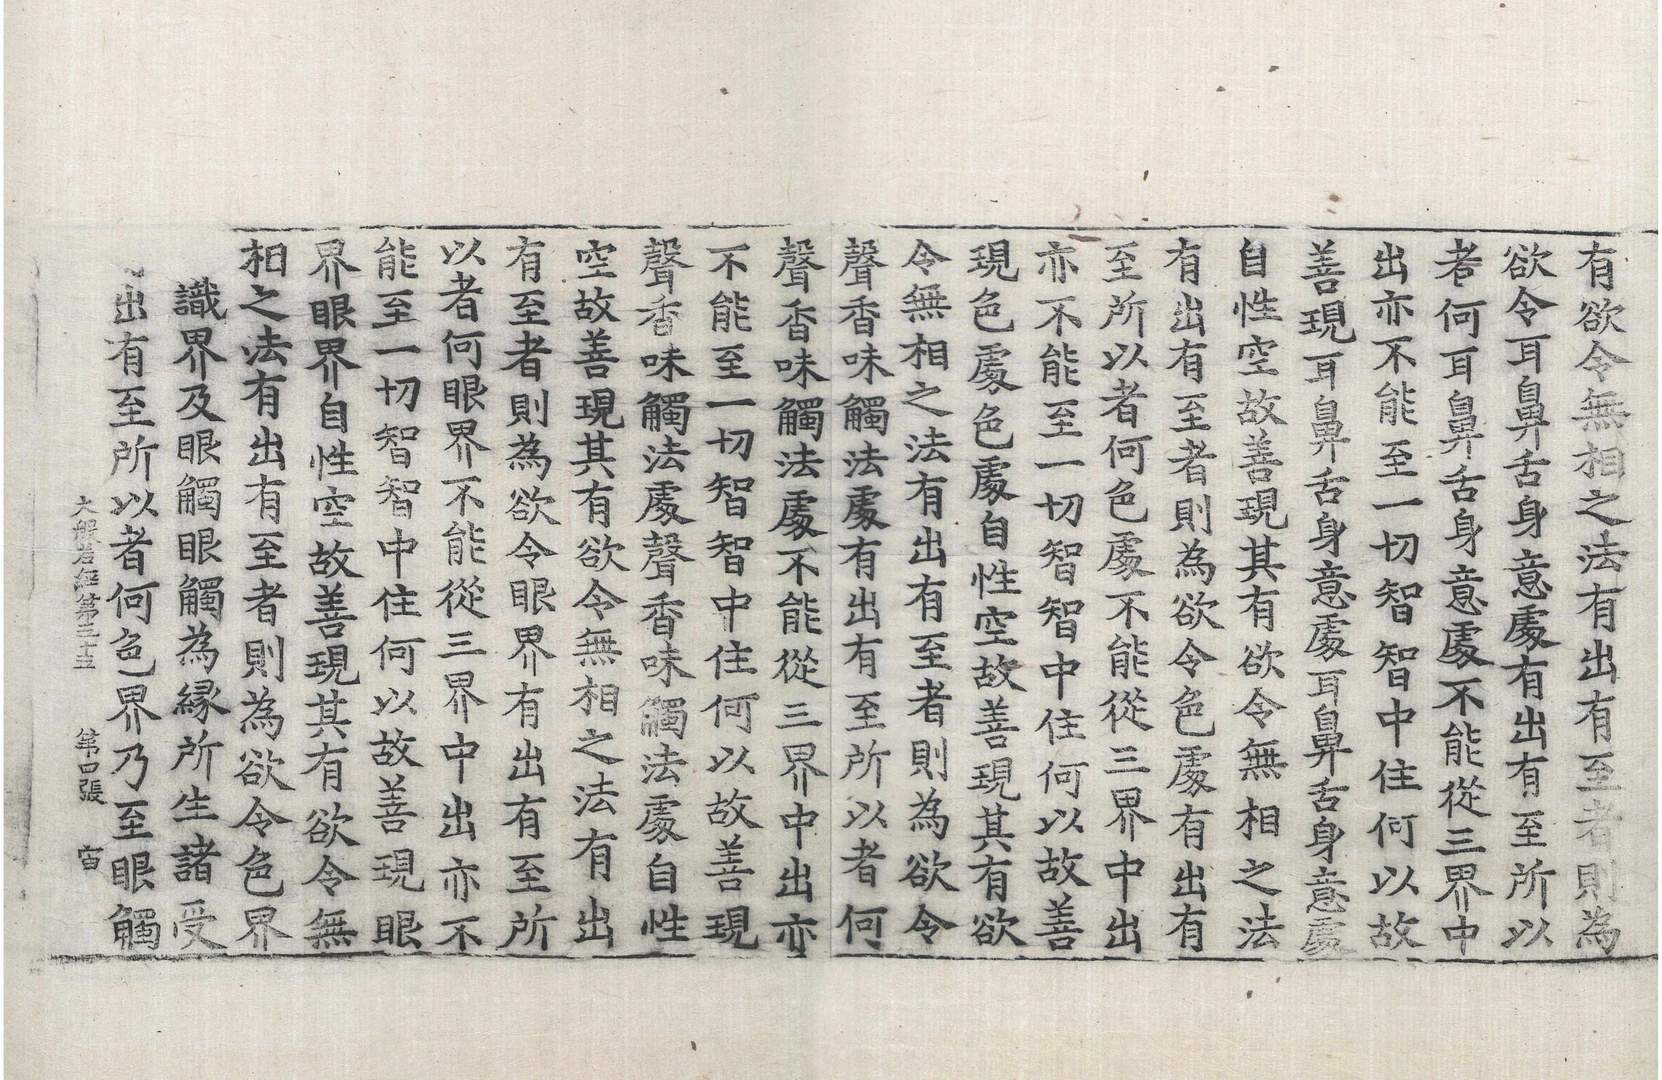 有欲令無相之法有出有至者則為
欲令耳鼻舌身意處有出有至所以
者何耳鼻舌身意處不能從三界中
出亦不能至一切智智中住何以故
善現耳鼻舌身意處耳鼻舌身意處
自性空故善現其有欲令無相之法
有出有至者則為欲令色處有出有
至所以者何色處不能從三界中出
亦不能至一切智智中住何以故善
現色處色處自性空故善現其有欲
令無相之法有出有至者則為欲令
聲香味觸法處有出有至所以者何
聲香味觸法處不能從三界中出亦
不能至一切智智中住何以故善現
聲香味觸法處聲香味觸法處自性
空故善現其有欲令無相之法有出
有至者則為欲令眼界有出有至所
以者何眼界不能從三界中出亦不
能至一切智智中住何以故善現眼
界眼界自性空故善現其有欲令無
相之法有出有至者則為欲令色界
識界及眼觸眼觸為緣所生諸受
出有至所以者何色界乃至眼觸
大般若經第 第四張 宙